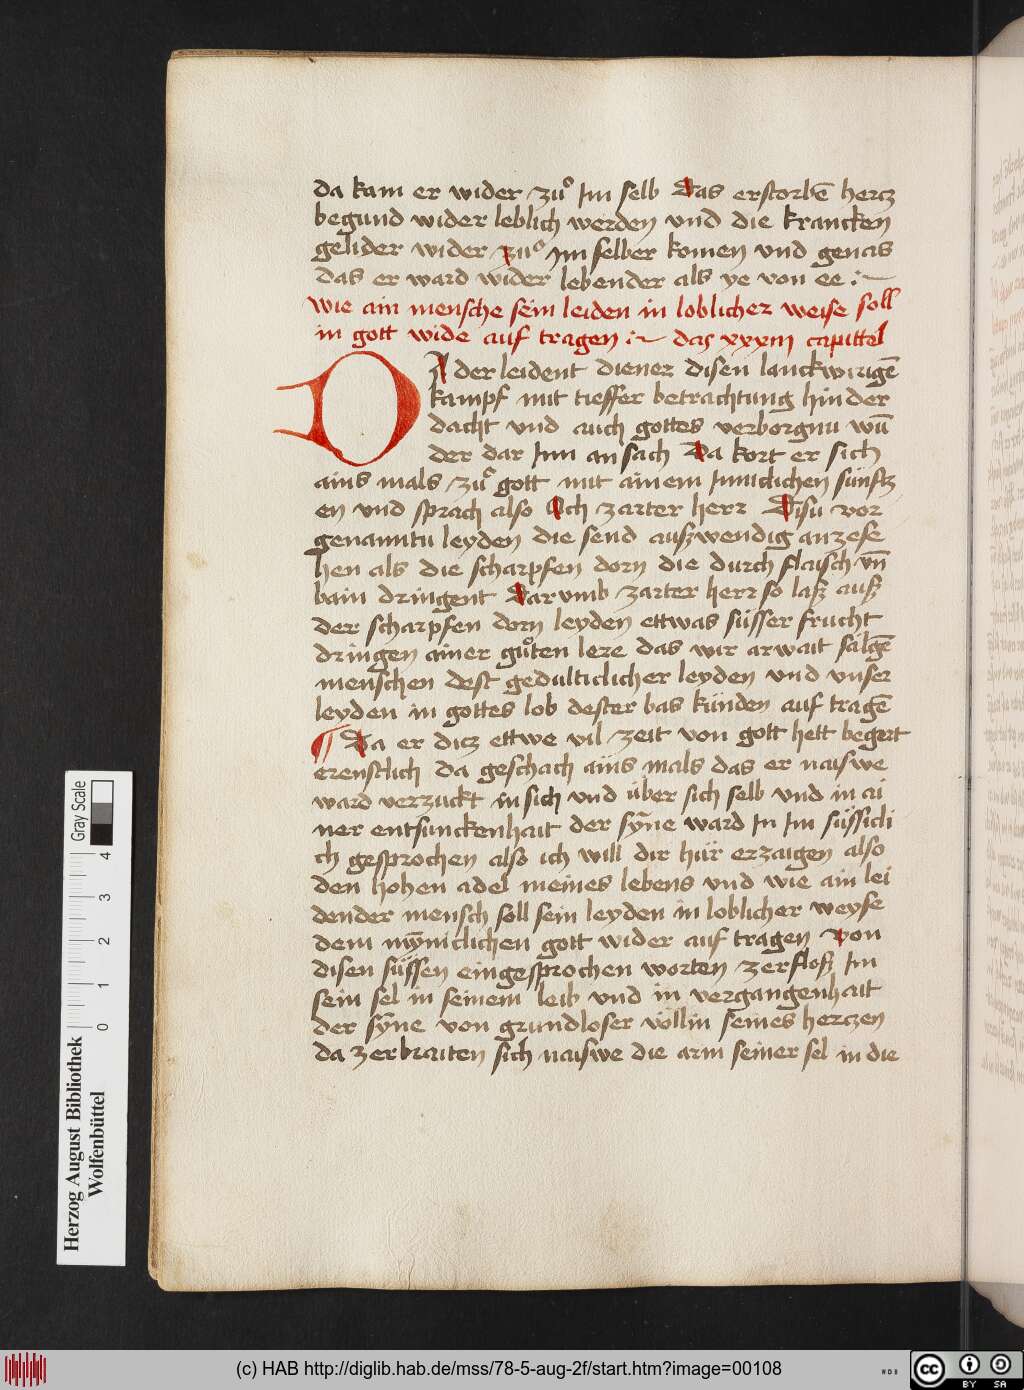 da kam er wider zuͦ Im selb Das erstorbē hercz
begund wider leblich werden vnd die krancken
gelider wider zuͦ im selber komen vnd genas
das er ward wider lebender als ye von ee :~
Wie ain mensche sein leiden in loblicher weise soll
in gott wide auf tragen :~ das xxxiii capittel
DA der leident diener disen lanckwirigē
kampf mit tieffer betrachtung hinder
dacht vnd auch gottes verborgnu wū
der dar Inn an sach Da kort er sich
ains mals zuͦ gott mit ainem Inniclichen sünftz
en vnd sprach also Ach zarter herr Disu vor
genanntu leyden die send auszwendig anzese
hen als die scharpfen dorn die durch flaisch vn̄
bain dringent Darumb zarter herr so lasz ausz
der scharpfen dorn leyden ettwas süsser frucht
dringen ainer guͦten lere das wir arwait sälgē
menschen dest gedulticlicher leyden vnd vnser
leyden in gottes lob dester bas künden auf tragē
¶ Da er dicz ettwe vil zeit von gott hett begert
erenstlich da geschach ains mals das er naiswe
ward verzuckt in sich vnd über sich selb vnd in ai
ner entsunckenhait der syñe ward In Im süssicli
ch gesprochen also ich will dir hür erzaigen also
den hohen adel meines lebens vnd wie ain lei
dender mensch soll sein leyden in loblicher weyse
dem myñiclichen gott wider auf tragen Von
disen süssen eingesprochen worten zerflosz Im
sein sel in seinem leib vnd in vergangenhait
der syñe von grundloser völlin seines herczen
da zerbraiten sich naiswe die arm seiner sel in die
Herzog August Bibliothek
Wolfenbüttel
0 1 2 3 4
Gray Scale
(c) HAB http://diglib.hab.de/mss/78-5-aug-2f/start.htm?image=00108
cc BY SA